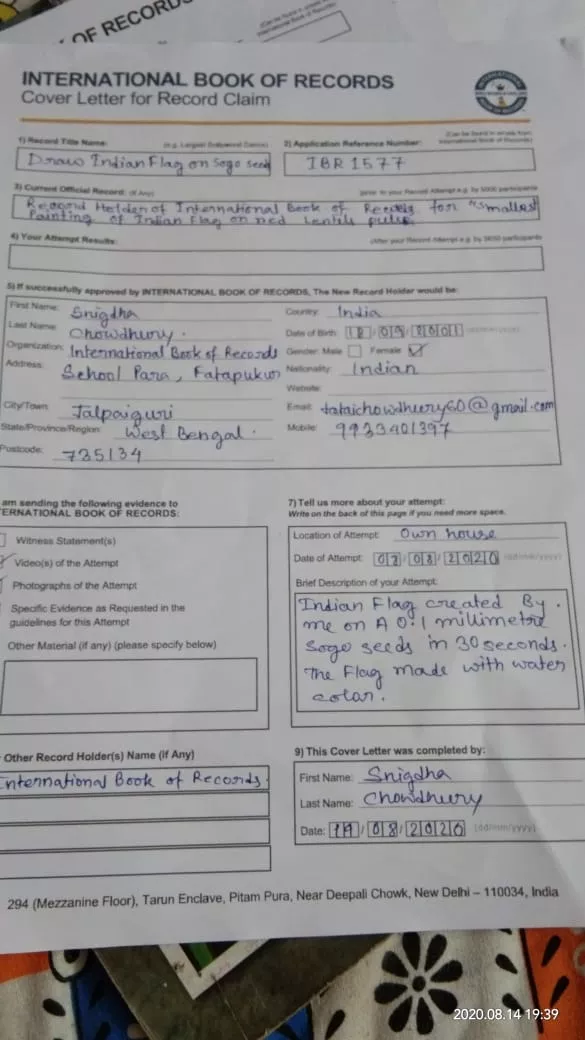 OF RECORDS
INTERNATIONAL BOOK OF RECORDS
Cover Letter for Record Claim
1) Record Title Name:
2) Application Reference Number:
Draw Indian Flag on Sogo seed
IBR 1577
3) Current Official Record: (if Any)
Record Holder of International Book of Records for "smallest
Painting of Indian Flag on red Lentils pulse
4) Your Attempt Results:
5) If successfully approved by INTERNATIONAL BOOK OF RECORDS, The New Record Holder would be:
First Name: Snigdha
Country: India
Last Name: Chowdhury.
Date of Birth:
Organization: International Book of Records
Gender: Male Female ✓
Address: School Para, Fatapukur
Nationality: Indian
Website:
City/Town: Jalpaiguri
Email: tataichowdhury60@gmail.com
State/Province/Region: West Bengal.
Mobile: 9933401397
Postcode: 735134
am sending the following evidence to
ERNATIONAL BOOK OF RECORDS:
Witness Statement(s)
Video(s) of the Attempt
Photographs of the Attempt
Specific Evidence as Requested in the
guidelines for this Attempt
Other Material (if any) (please specify below)
7) Tell us more about your attempt:
Write on the back of this page if you need more space.
Location of Attempt: Own house
Date of Attempt: 07/08/2020 (dd/mm/yyyy)
Brief Description of your Attempt:
Indian Flag created By
me on A 0.1 millimetre
Sogo seeds in 30 seconds.
The Flag made with water
color.
Other Record Holder(s) Name (if Any)
International Book of Records.
9) This Cover Letter was completed by:
First Name: Snigdha
Last Name: Chowdhury
Date: 14/08/2020 (dd/mm/yyyy)
294 (Mezzanine Floor), Tarun Enclave, Pitam Pura, Near Deepali Chowk, New Delhi – 110034, India
2020.08.14 19:39